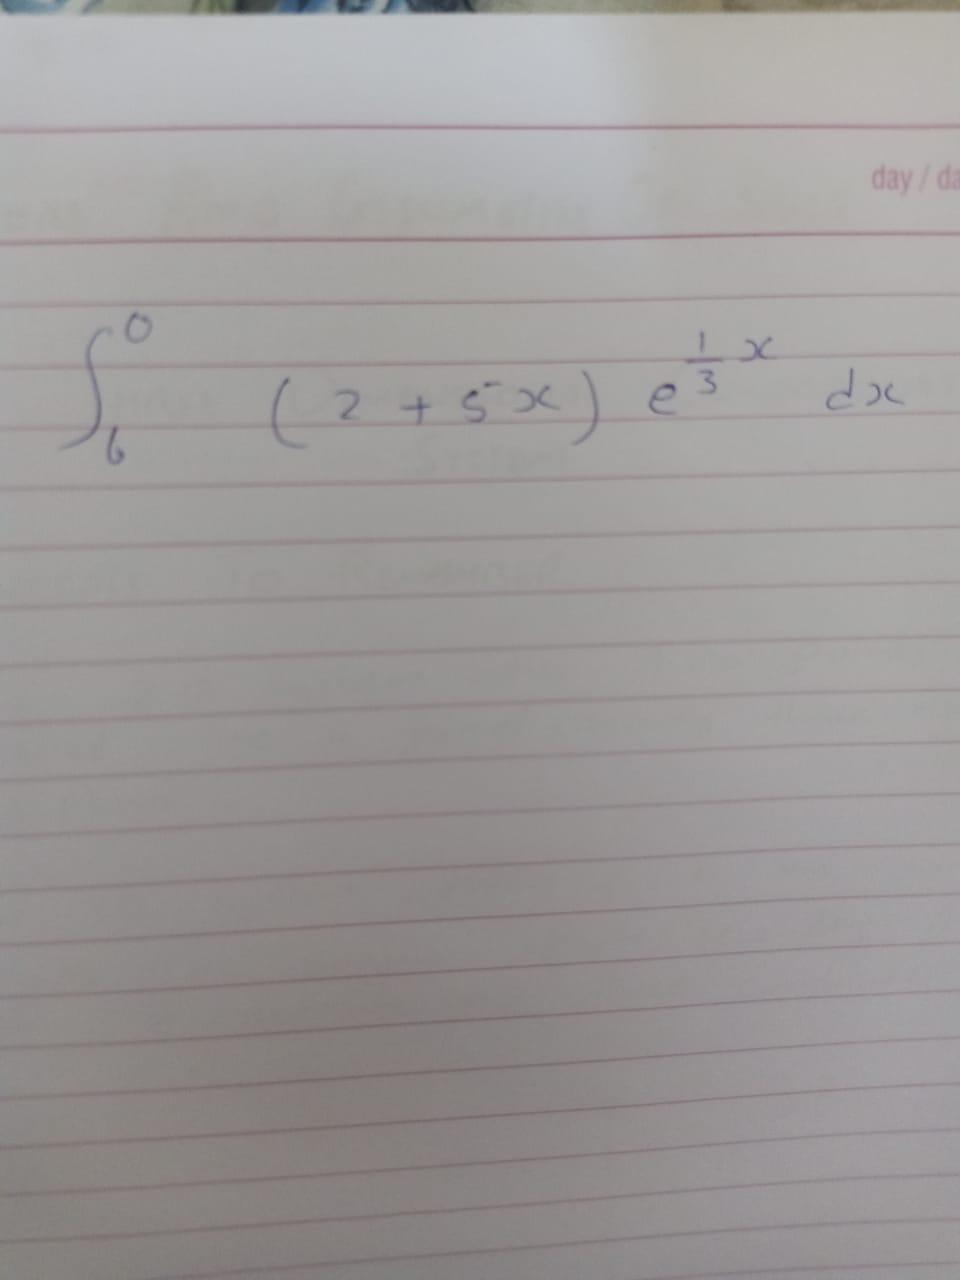 day / da
∫₆⁰ (2 + 5x) e^{\frac{1}{3}x} dx